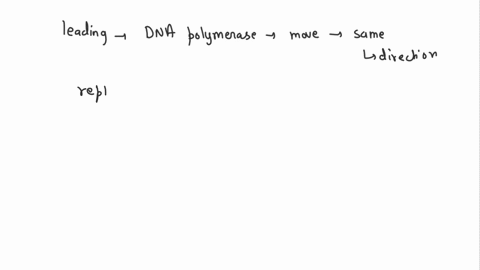 leading → DNA polymerase → move → same
↳direction
repl